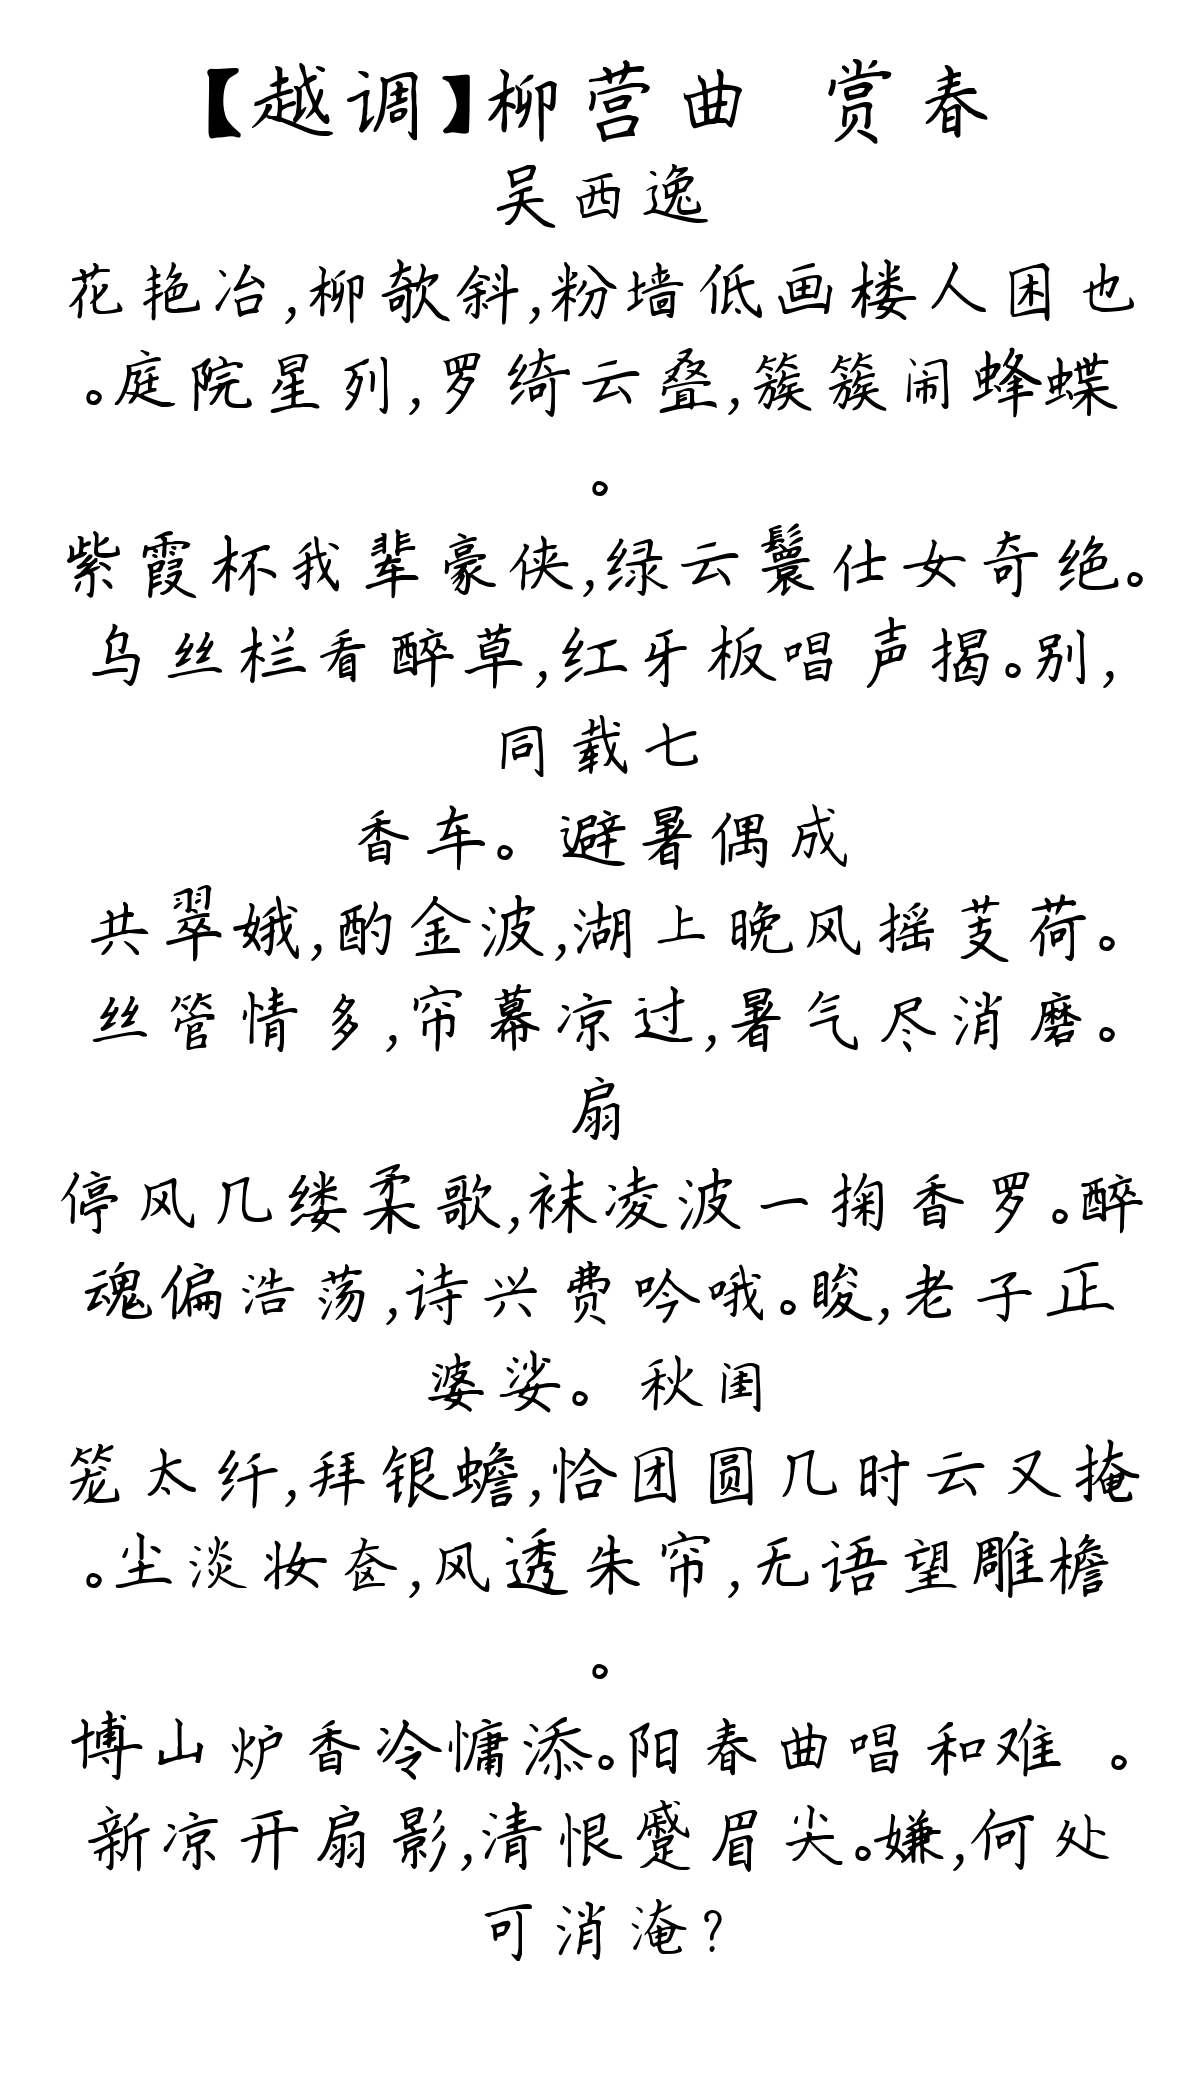 【越调】柳营曲 赏春
吴西逸
花艳冶,柳欹斜,粉墙低画楼人困也
。庭院星列,罗绮云叠,簇簇闹蜂蝶
。
紫霞杯我辈豪侠,绿云鬟仕女奇绝。
乌丝栏看醉草,红牙板唱声揭。别,
同载七
香车。 避暑偶成
共翠娥,酌金波,湖上晚风摇芰荷。
丝管情多,帘幕凉过,暑气尽消磨。
扇
停风几缕柔歌,袜凌波一掬香罗。醉
魂偏浩荡,诗兴费吟哦。睃,老子正
婆娑。 秋闺
笼太纤,拜银蟾,恰团圆几时云又掩
。尘淡妆奁,风透朱帘,无语望雕檐
。
博山炉香冷慵添。阳春曲唱和难 。
新凉开扇影,清恨蹙眉尖。嫌,何处
可消淹?